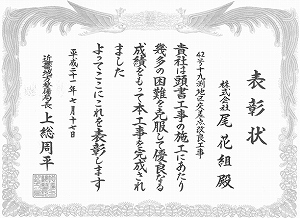 表彰状
株式会社 尾花組 殿
42号十九渕地区交差点改良工事
貴社は頭書工事の施工にあたり
幾多の困難を克服して優良なる
成績をもって本工事を完成され
ました
よってここにこれを表彰します
平成二十一年七月十七日
近畿地方整備局長 上総周平